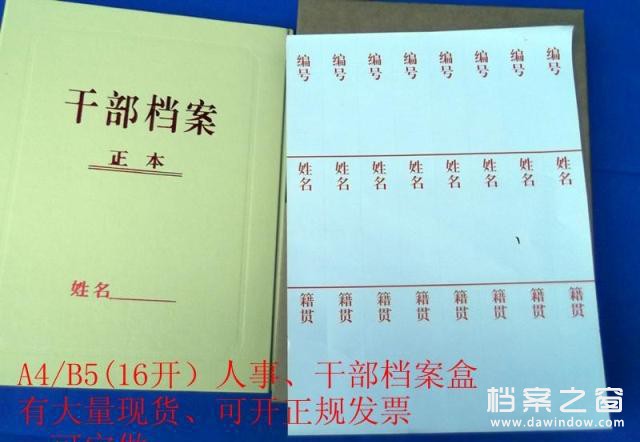 干部档案
正本
姓名
编号 编号 编号 编号 编号 编号 编号 编号
姓名 姓名 姓名 姓名 姓名 姓名 姓名 姓名
籍贯 籍贯 籍贯 籍贯 籍贯 籍贯 籍贯 籍贯
A4/B5(16开）人事、干部档案盒
有大量现货、可开正规发票
可定做
档案之窗
www.dawindow.com